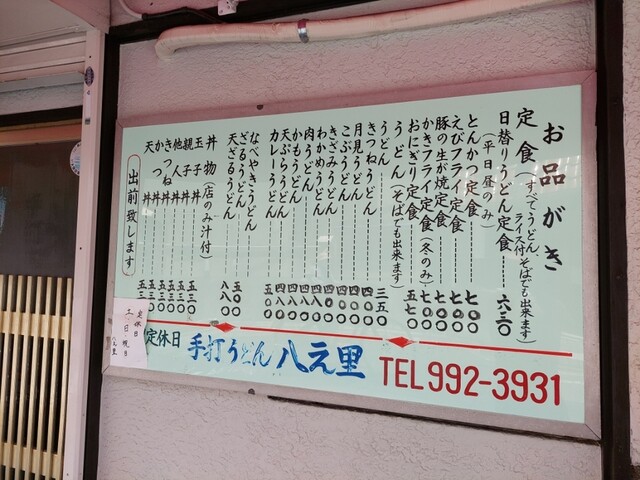 お品がき
定食(すべてうどん、ライス付 そばでも出来ます)
日替りうどん定食………六三〇
(平日昼のみ)
とんかつ定食………七〇〇
えびフライ定食………七〇〇
豚の生が焼定食………七〇〇
かきフライ定食(冬のみ)七〇〇
おにぎり定食………五七〇
うどん(そばでも出来ます)
うどん………三五〇
きつねうどん………四〇〇
月見うどん………四〇〇
こぶうどん………四〇〇
きざみうどん………四〇〇
わかめうどん
肉うどん
かもうどん
天ぷらうどん
カレーうどん………五〇〇
なべやきうどん
ざるうどん
天ざるうどん
丼物(店のみ汁付)
玉子丼………五三〇
親子丼………五三〇
他人丼………五三〇
きつね丼………五三〇
かつ丼………五三〇
天丼………五三〇
出前致します
定休日
手打うどん 八える里
TEL992-3931
定休日